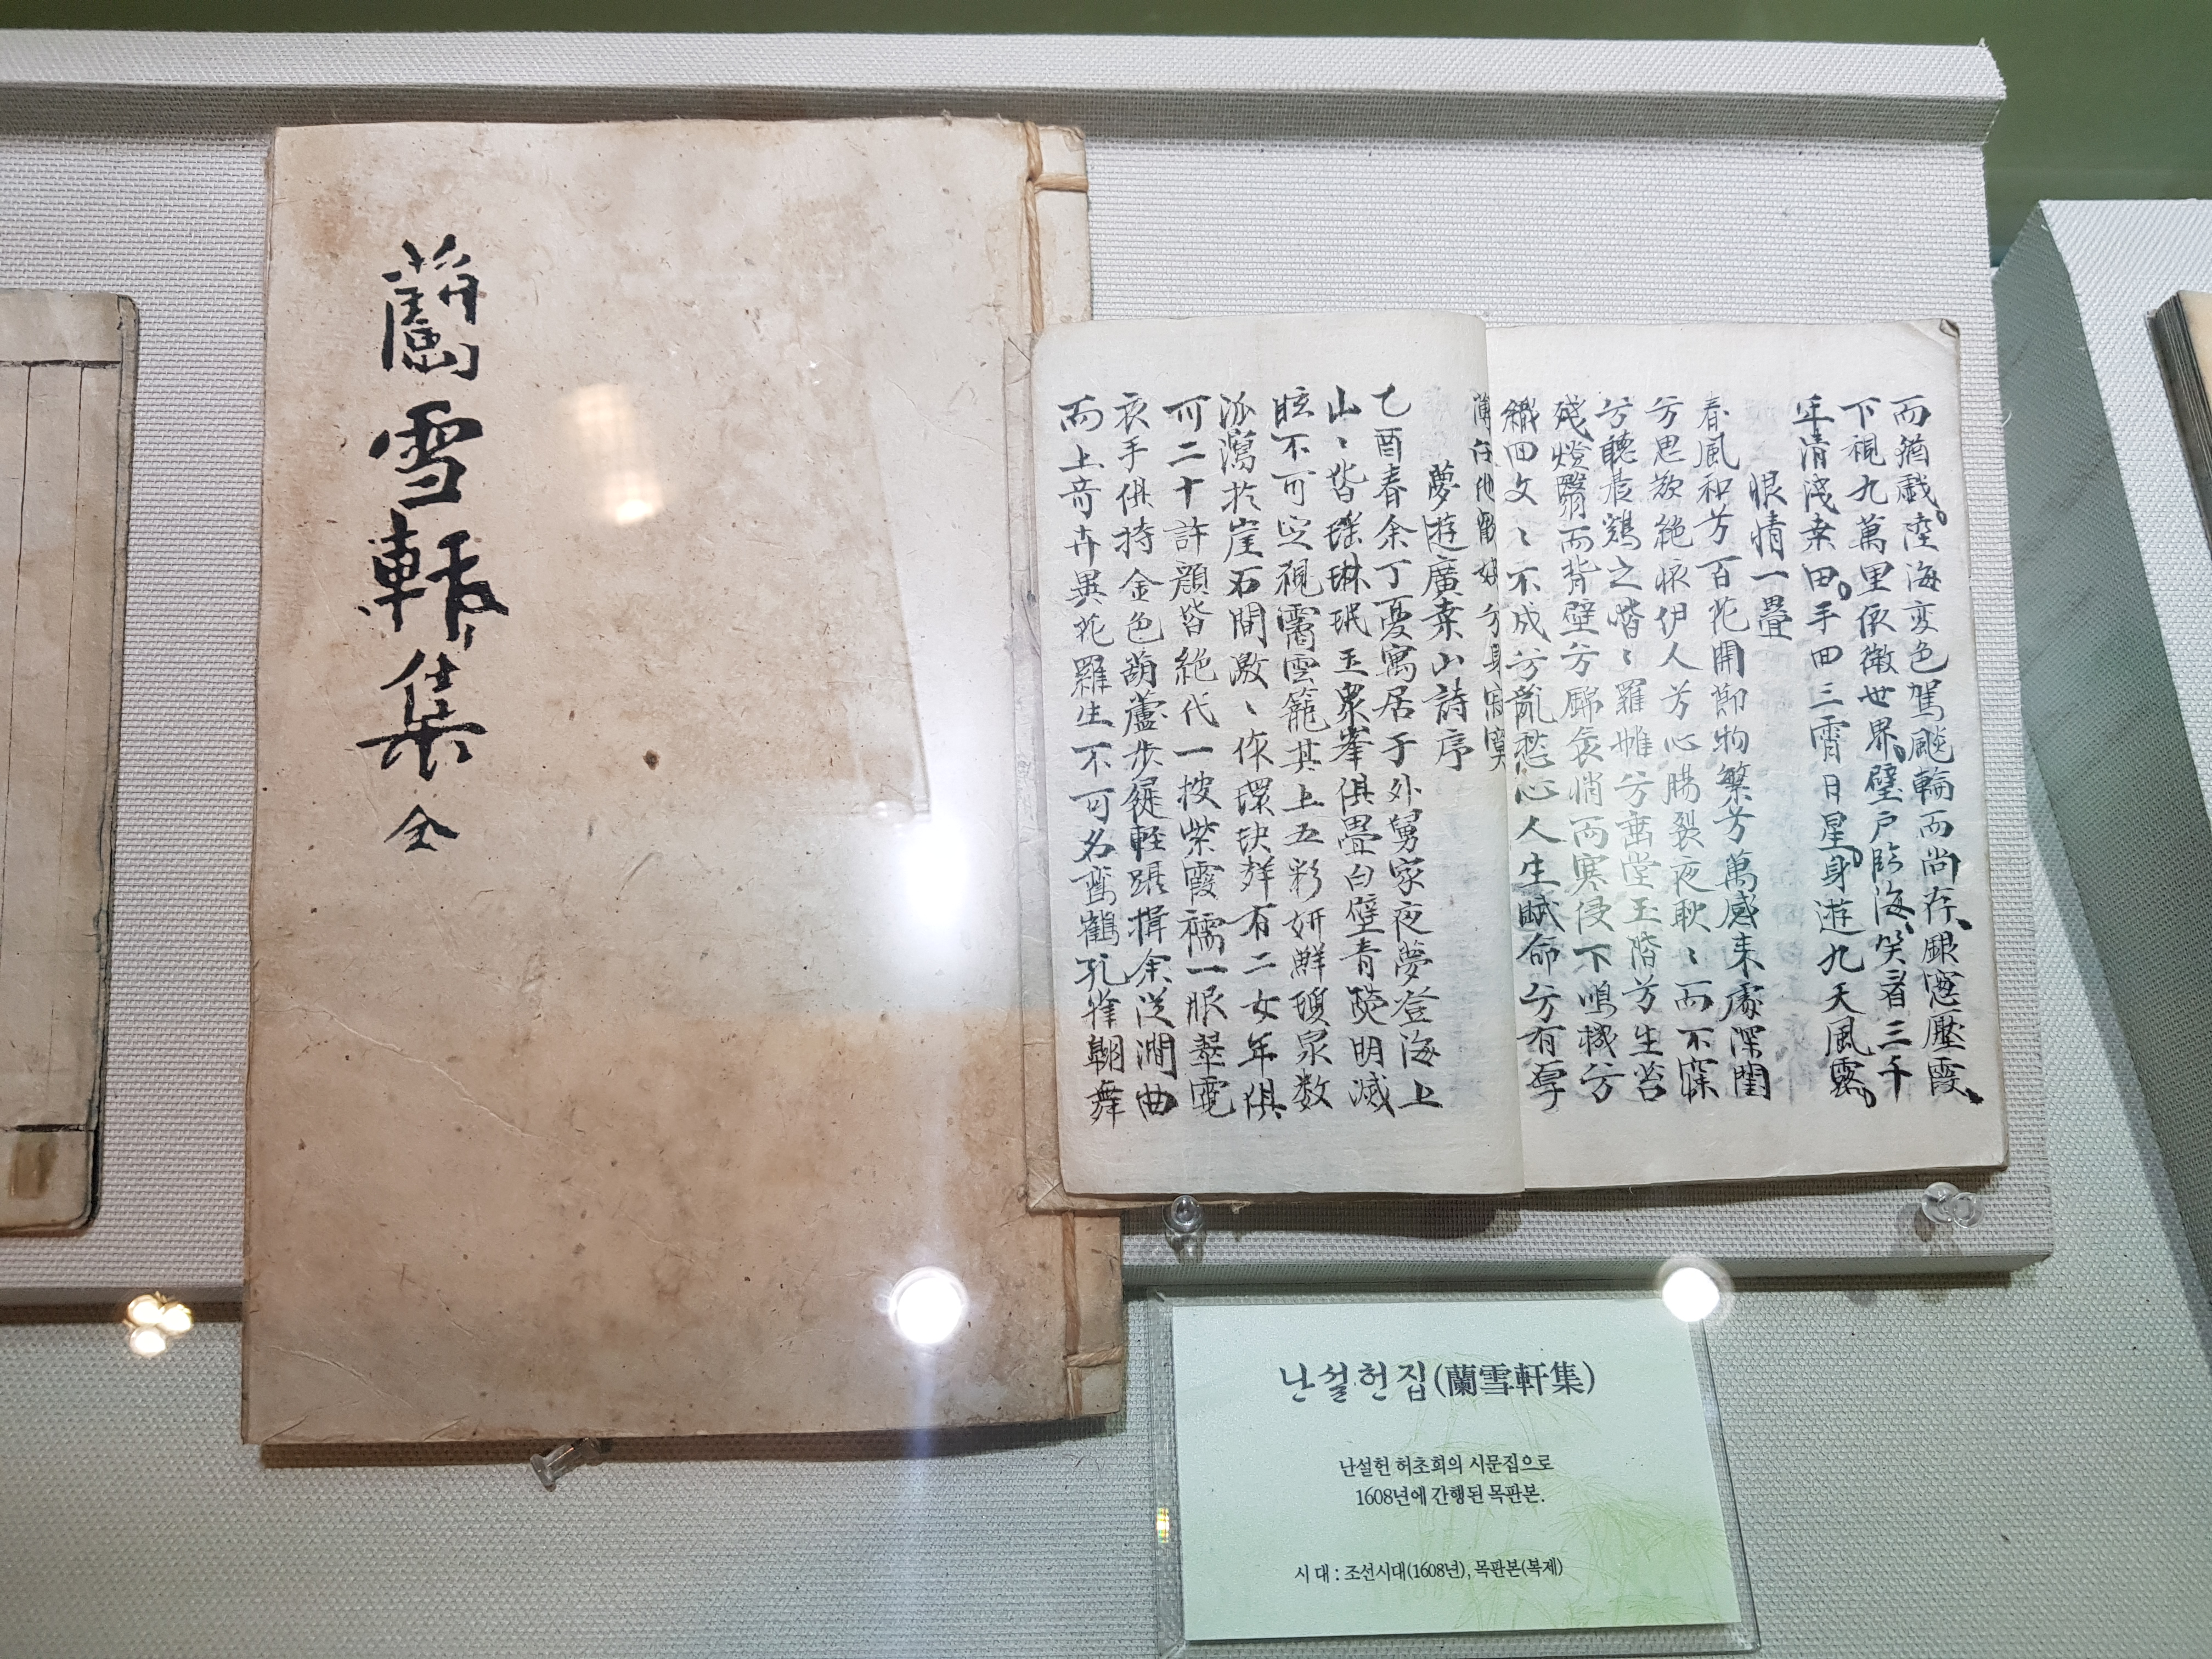 蘭雪軒集 全
而猶戲。陸海變色駕飈輪而尚存、銀窓壓霞、
下視九萬里依微世界、壁戶臨海、笑看三千
年清淺桒田。手回三霄日星、身遊九天風露。
恨情一疊
春風和兮百花開節物繁兮萬感来處深閨
兮思欲絶懷伊人兮心腸裂夜耿〻而不寐
兮聽晨鷄之喈〻羅帷兮垂堂玉階兮生苔
殘燈翳而背壁兮錦衾悄而寒侵下鳴機兮
織回文〻不成兮亂愁心人生賦命兮有厚
薄任他歡娛兮身寂寞
夢遊廣桒山詩序
乙酉春余丁憂寓居于外舅家夜夢登海上
山〻皆瑤琳珉玉衆峯俱疊白壁青熒明滅
眩不可定視霱雲籠其上五彩妍鮮瓊泉数
派瀉於崖石間激〻作環玦聲有二女年俱
可二十許顔皆絶代一披紫霞襦一服翠霓
衣手俱持金色葫蘆步屣軽躡揖余従澗曲
而上奇卉異花羅生不可名鸞鶴孔雀翺舞
난설헌집(蘭雪軒集)
난설헌 허초희의 시문집으로
1608년에 간행된 목판본.
시 대 : 조선시대(1608년), 목판본(복제)